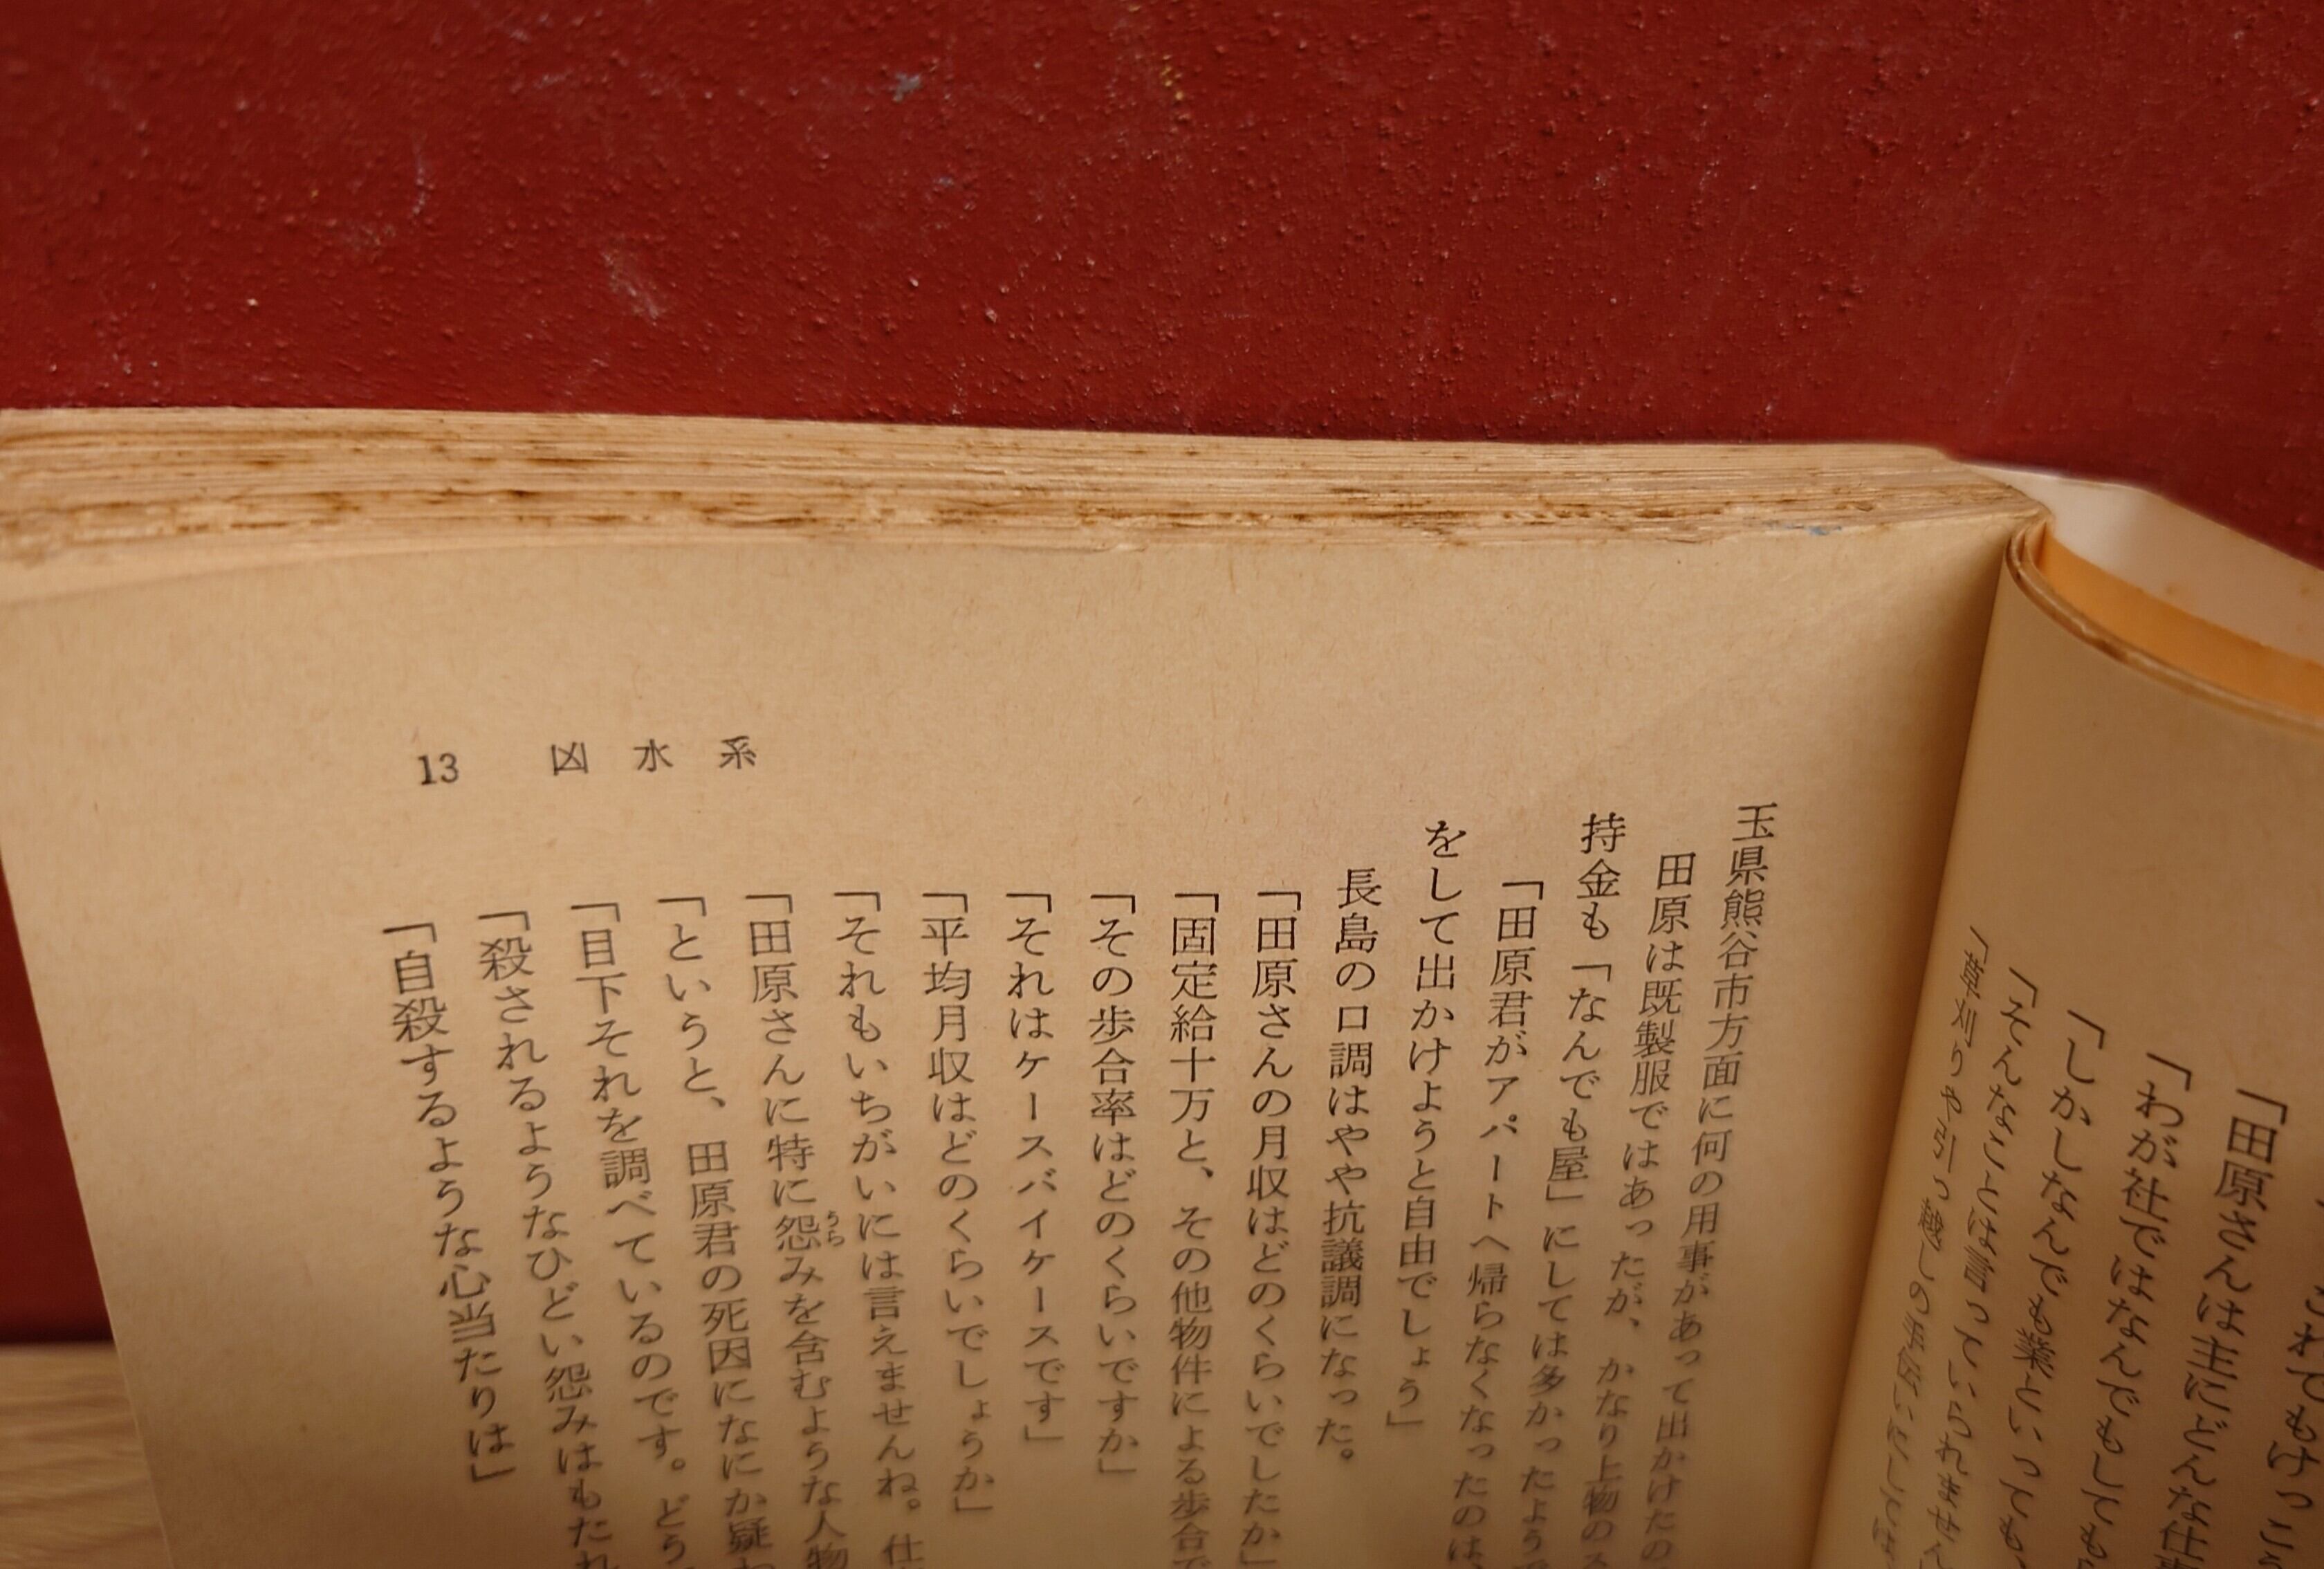 13 凶水系
玉県熊谷市方面に何の用事があって出かけたの
田原は既製服ではあったが、かなり上物のス
持金も「なんでも屋」にしては多かったようで
「田原君がアパートへ帰らなくなったのは、
をして出かけようと自由でしょう」
長島の口調はやや抗議調になった。
「田原さんの月収はどのくらいでしたか」
「固定給十万と、その他物件による歩合で
「その歩合率はどのくらいですか」
「それはケースバイケースです」
「平均月収はどのくらいでしょうか」
「それもいちがいには言えませんね。仕
「田原さんに特に怨みを含むような人物
うら
「というと、田原君の死因になにか疑わ
「目下それを調べているのです。どう
「殺されるようなひどい怨みはもたれ
「自殺するような心当たりは」
れでもけっこう
「田原さんは主にどんな仕事
「わが社ではなんでもしても
「しかしなんでも業といっても、
「そんなことは言っていられません
「草刈りや引っ越しの手伝いにしては